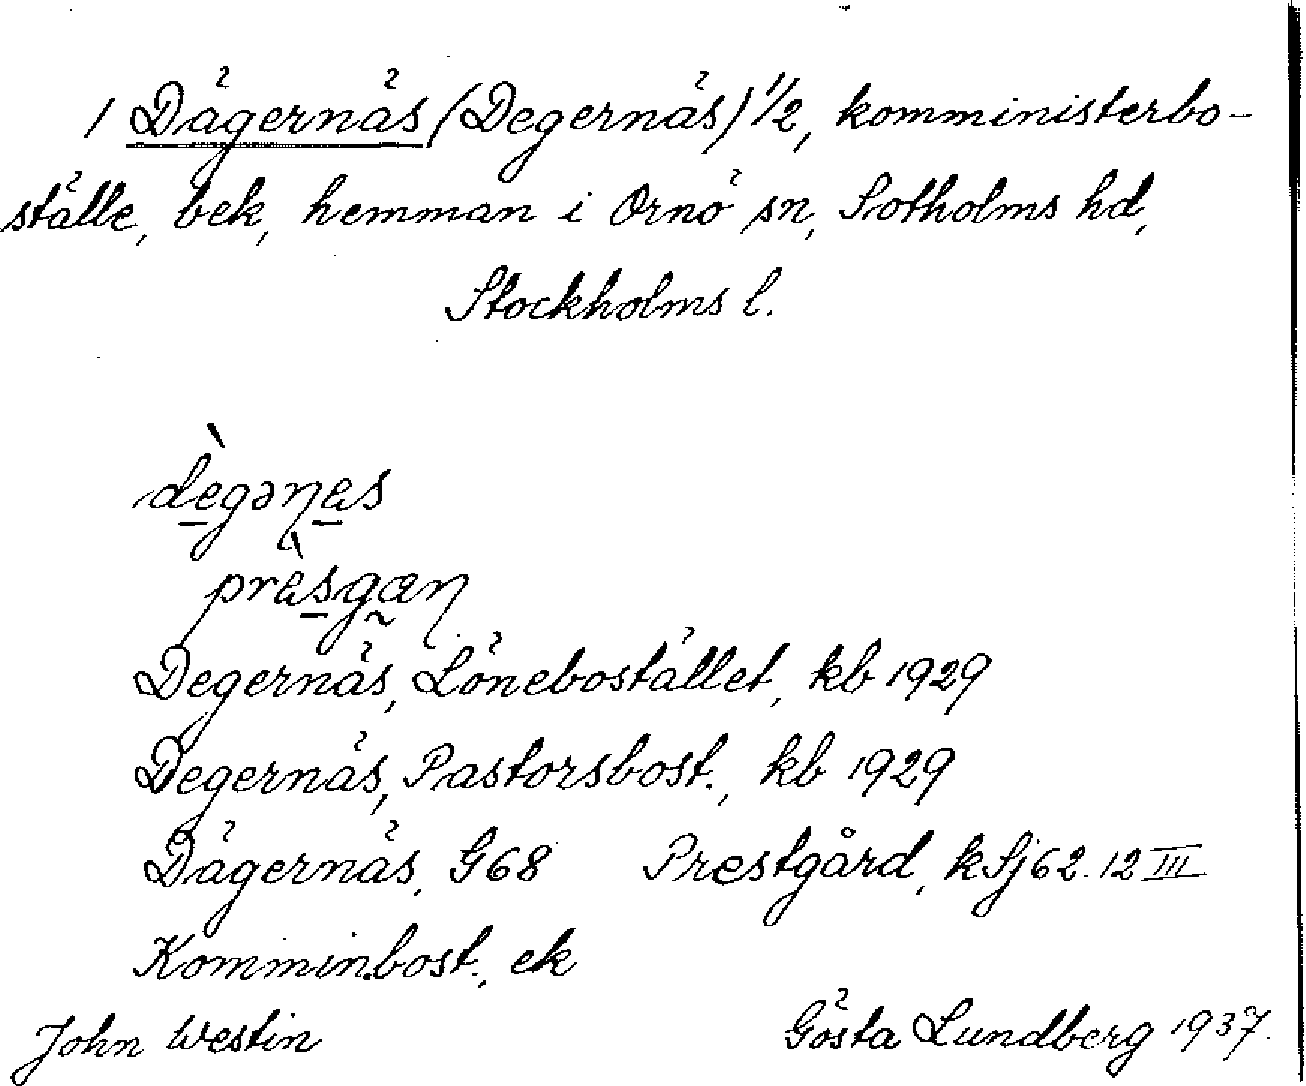 1 Dägernäs (Degernäs) 1/2, komministerbo-
ställe, bek, hemman i Ornö sn, Sotholms hd,
Stockholms l.
Degernäs, Lönebostället, kb 1929
Degernäs, Pastorsbost., kb 1929
Dägernäs, G68 Prestgård, k Sj 62.12 III
Komminbost., ek
John Westin Gösta Lundberg 1937.